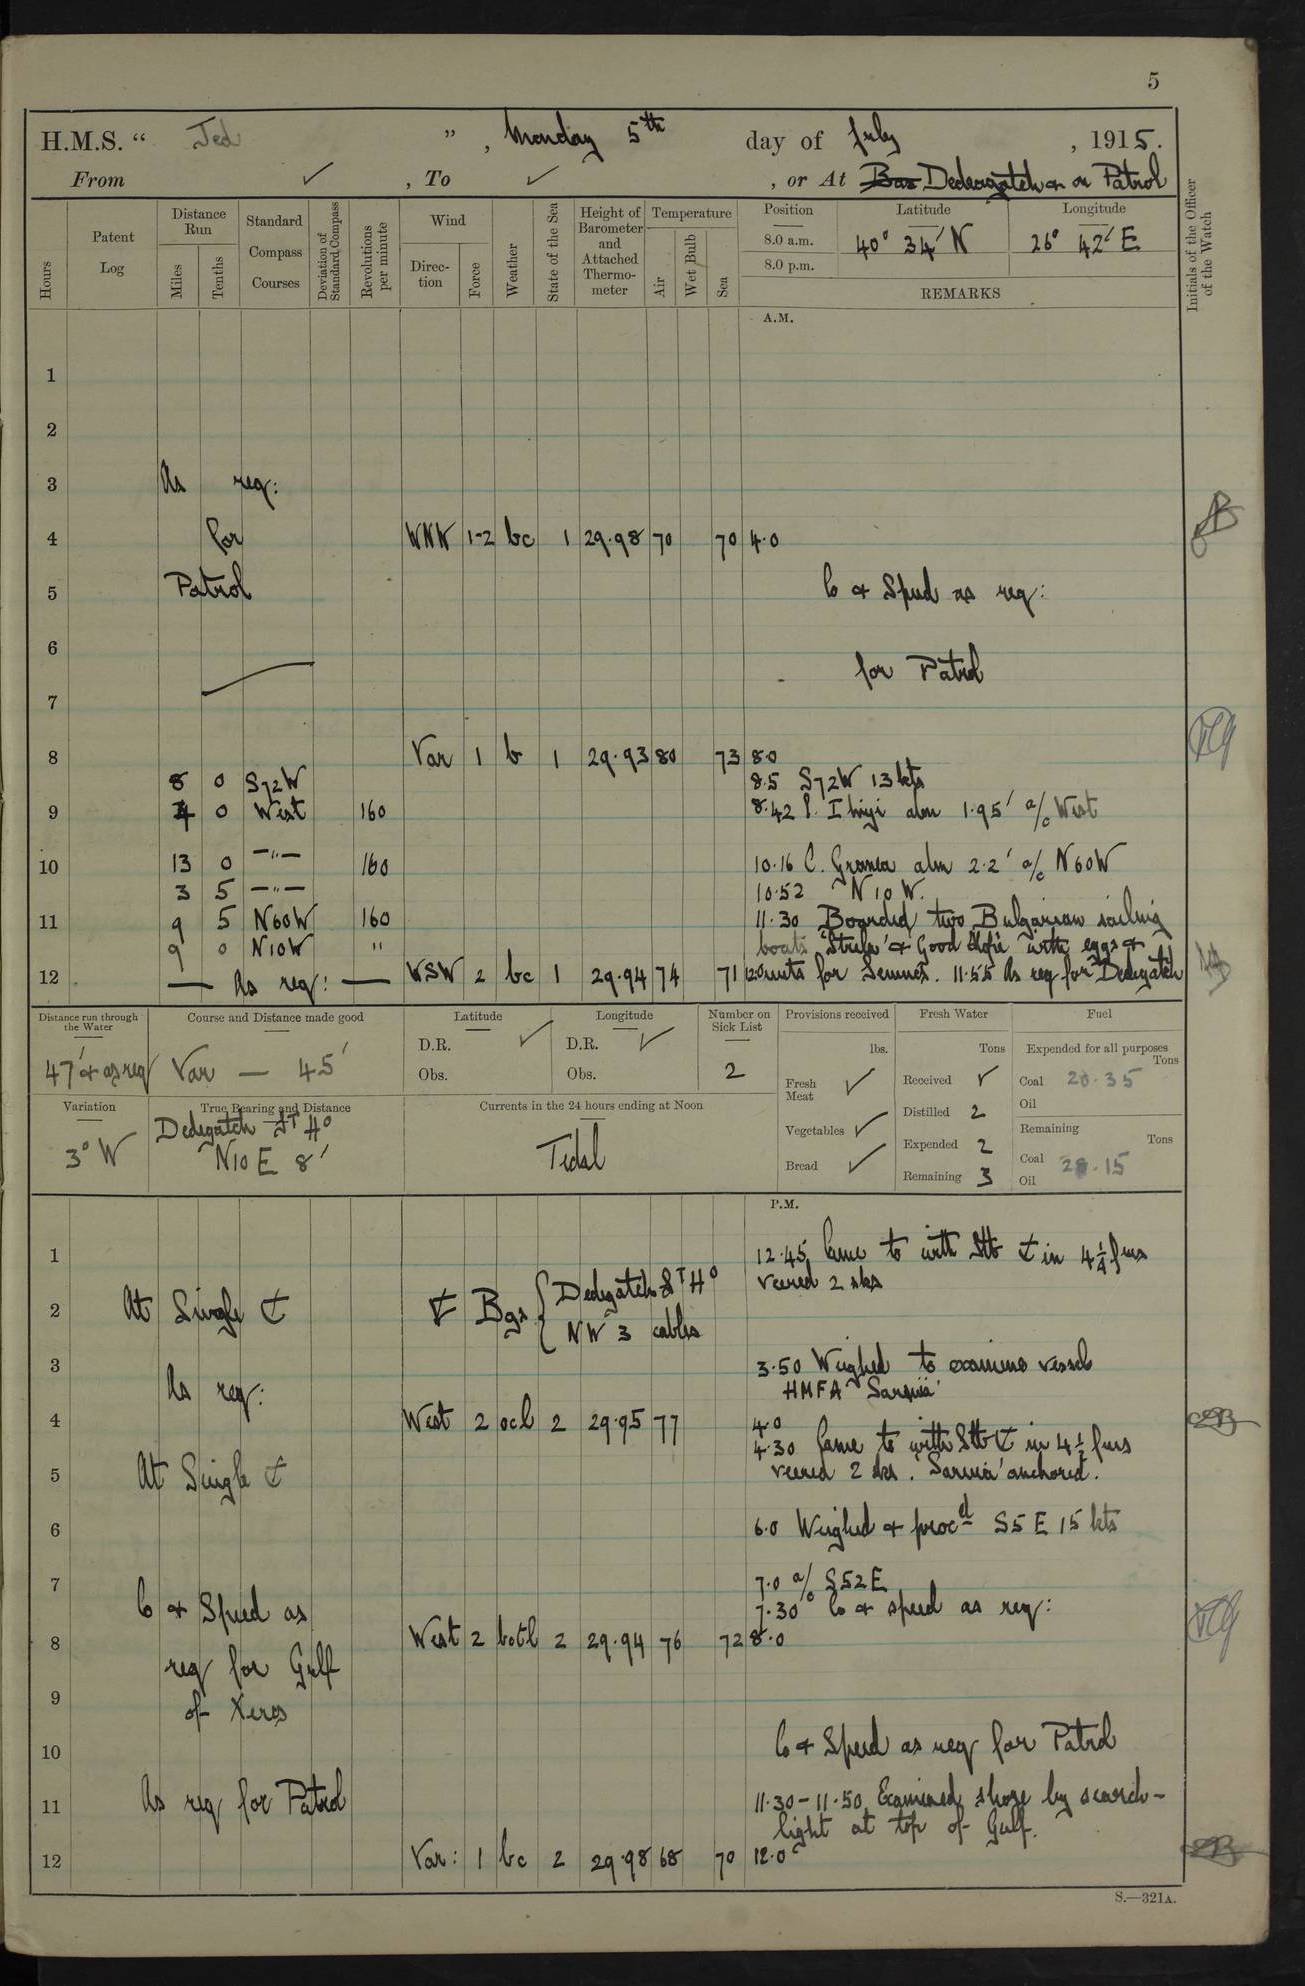 5
H.M.S. " Jed " , Monday 5th day of July , 1915.
From ✓ , To ✓ , or At Dedeagatch or on Patrol
Hours
Patent Log
Distance Run
Miles
Tenths
Standard Compass Courses
Deviation of Standard Compass
Revolutions per minute
Wind
Direction
Force
Weather
State of the Sea
Height of Barometer and Attached Thermometer
Temperature
Air
Wet Bulb
Sea
Position
Latitude
Longitude
8.0 a.m. 40° 34' N 26° 42' E
8.0 p.m.
REMARKS
Initials of the Officer of the Watch
A.M.
1
2
3 As req:
4 for WNW 1-2 bc 1 29.98 70 70 4.0
5 Patrol Co & Speed as req:
6
for Patrol
7
8 Var 1 b 1 29.93 80 73 8.0
8 0 S72W 8.5 S72W 13 kts
9 4 0 West 160 8.42 P. Ibriji abm 1.95' a/c West
10 13 0 —"— 160 10.16 C. Gremea abm 2.2' a/c N60W
3 5 —"— 10.52 N10W.
11 9 5 N60W 160 11.30 Boarded two Bulgarian sailing
9 0 N10W " boats & Good Hope with eggs &
12 — As req: — WSW 2 bc 1 29.94 74 71 12.0 nuts for Lemnos. 11.55 As req for Dedegatch
Distance run through the Water
47' & as req
Course and Distance made good
Var — 45'
Latitude
D.R. ✓
Obs.
Longitude
D.R. ✓
Obs.
Number on Sick List
2
Provisions received
lbs.
Fresh Meat ✓
Vegetables ✓
Bread ✓
Fresh Water
Tons
Received ✓
Distilled 2
Expended 2
Remaining 3
Fuel
Expended for all purposes
Tons
Coal 20.35
Oil
Remaining
Tons
Coal 28.15
Oil
Variation
3° W
True Bearing and Distance
Dedegatch LT Ho
N10E 8'
Currents in the 24 hours ending at Noon
Tidal
P.M.
1 12.45 Came to with Stb ⚓ in 4¼ fms
veered 2 sks
2 At Single ⚓ ⚓ Bgs { Dedegatch LT Ho
NW 3 cables
3 3.50 Weighed to examine vessel
As req: HMFA 'Sarnia'
4 West 2 ocl 2 29.95 77 4.0
4.30 Came to with Stb ⚓ in 4½ fms
5 At Single ⚓ veered 2 sks. 'Sarnia' anchored.
6 6.0 Weighed & procd S5E 15 kts
7 7.0 a/c S52E
Co & Speed as 7.30 Co & speed as req:
8 West 2 bctl 2 29.94 76 72 8.0
req for Gulf
9 of Xeros
10 Co & Speed as req for Patrol
11 As req for Patrol 11.30 - 11.50 Examined shore by search-
light at top of Gulf.
12 Var: 1 bc 2 29.98 68 70 12.0
S.—321A.